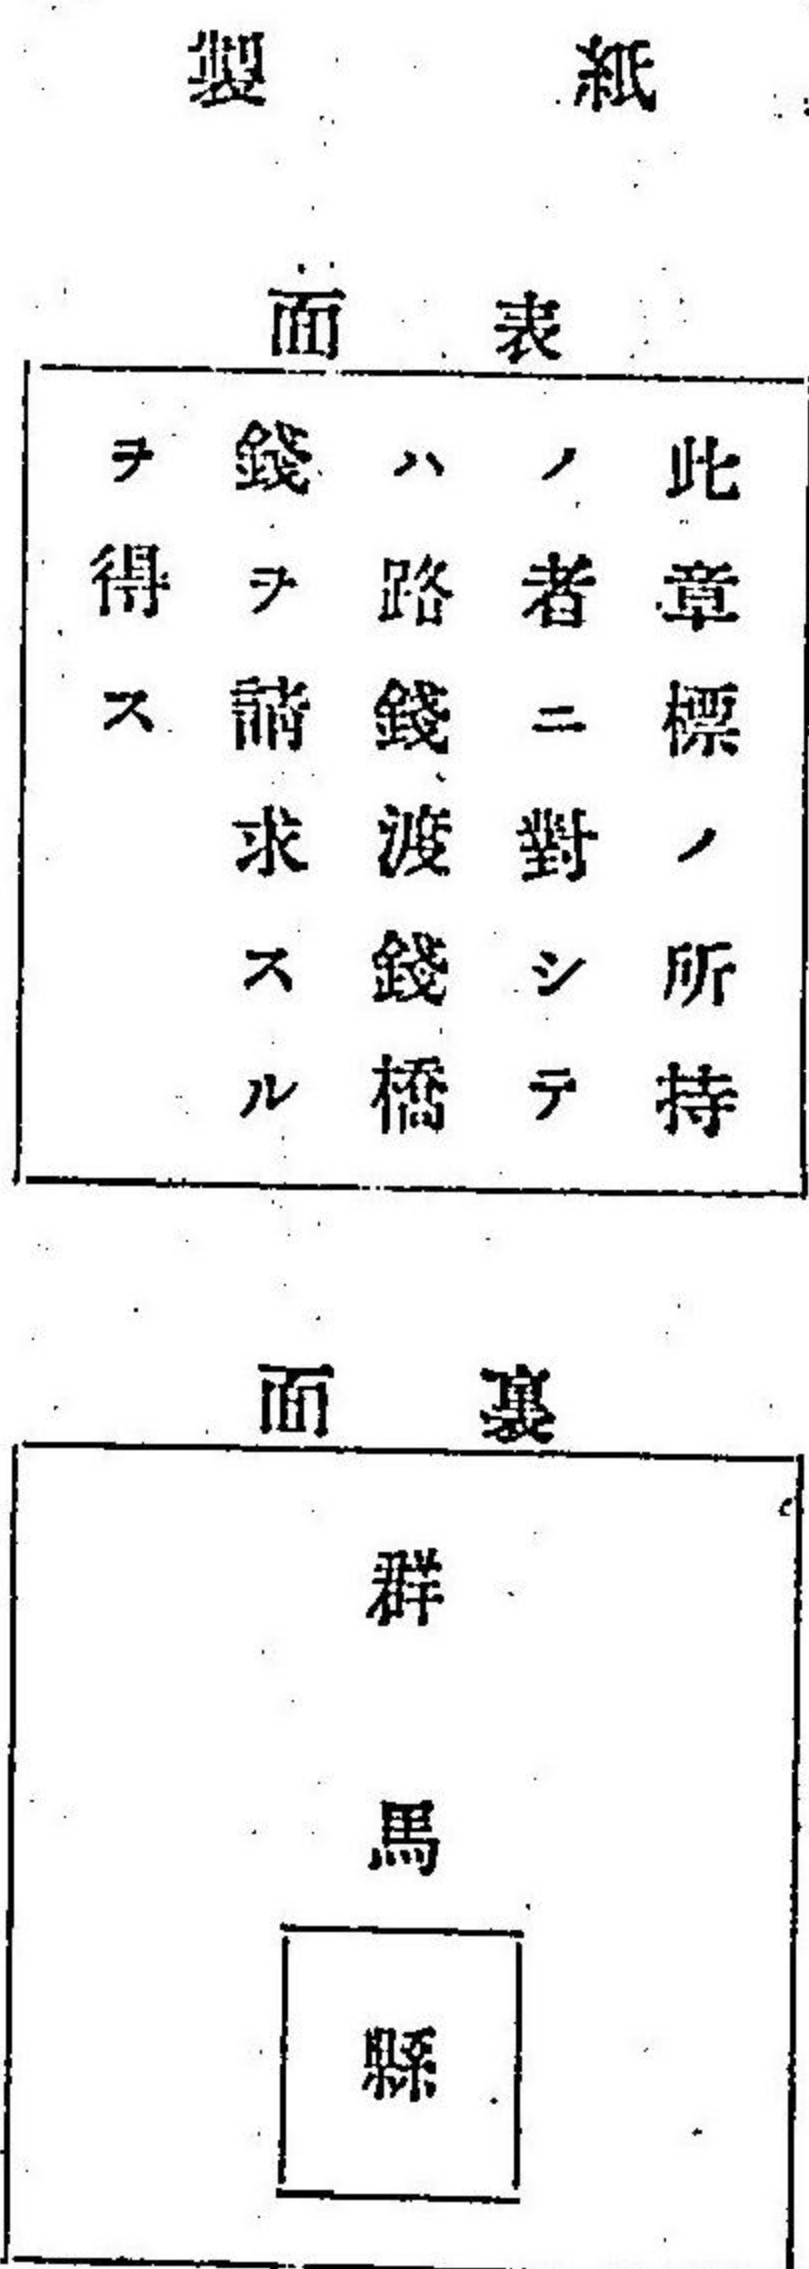 紙製
表面
此章標ノ所持
ノ者ニ對シテ
ハ路錢渡錢橋
錢ヲ請求スル
ヲ得ス
裏面
群馬縣